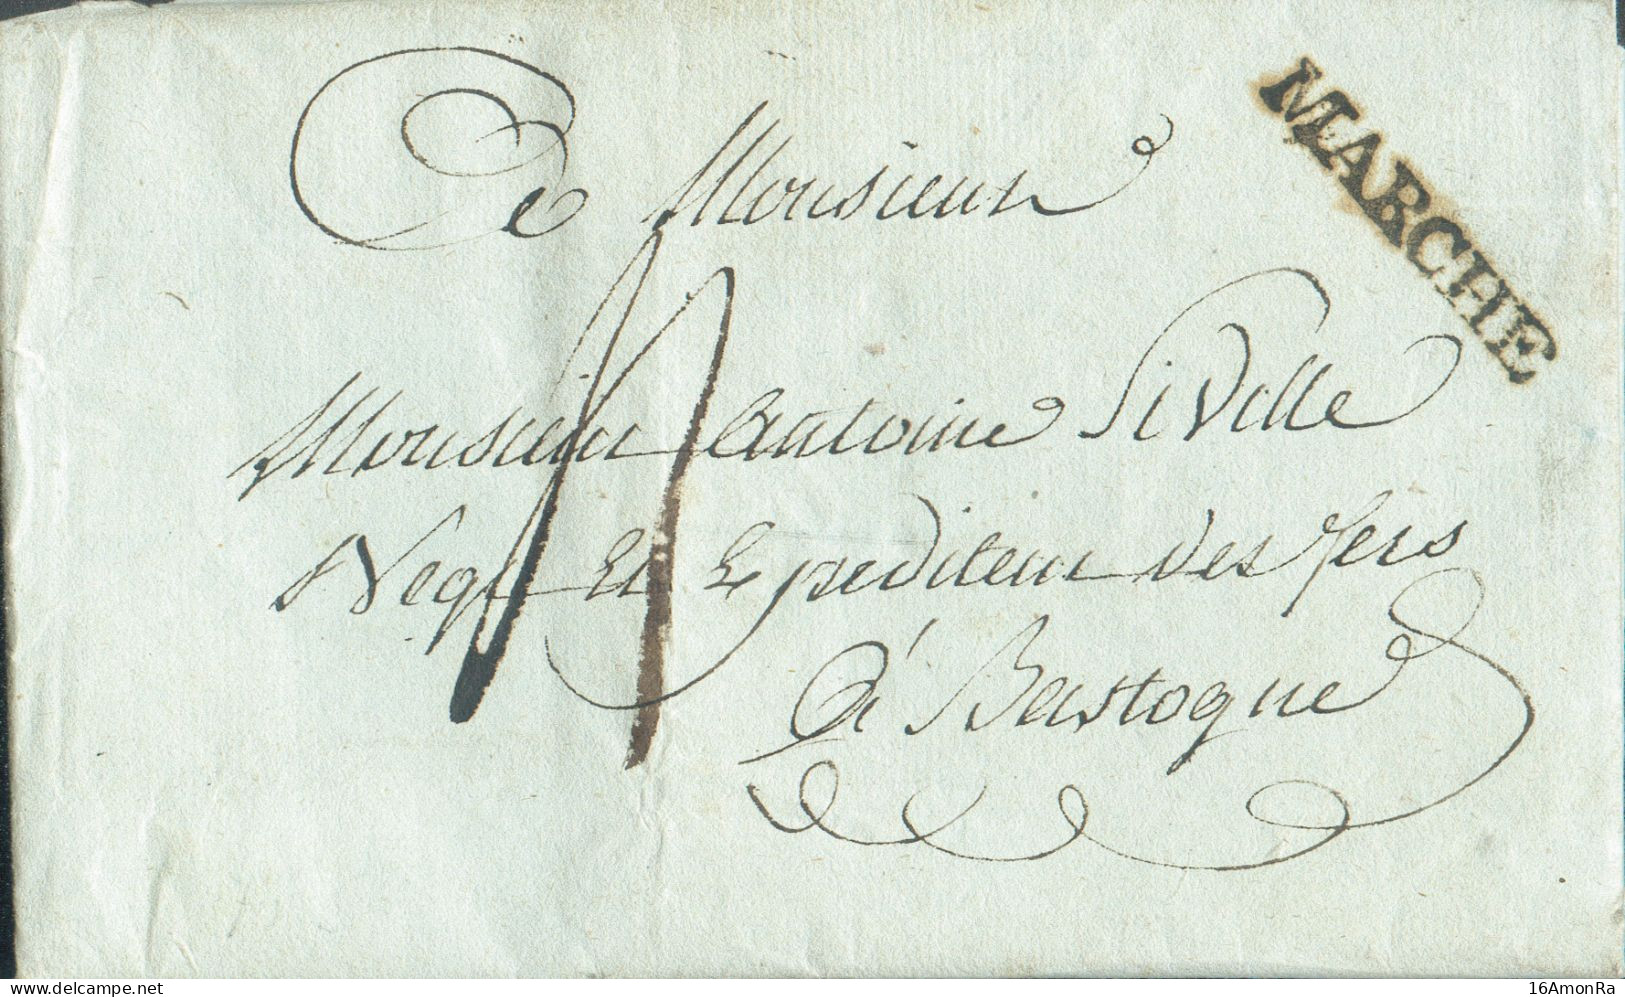 MARCHE
De Monsieur
Monsieur Antoine SiVille
Negt Et Expediteur des fers
à Bastogne
www.delcampe.net
16AmonRa